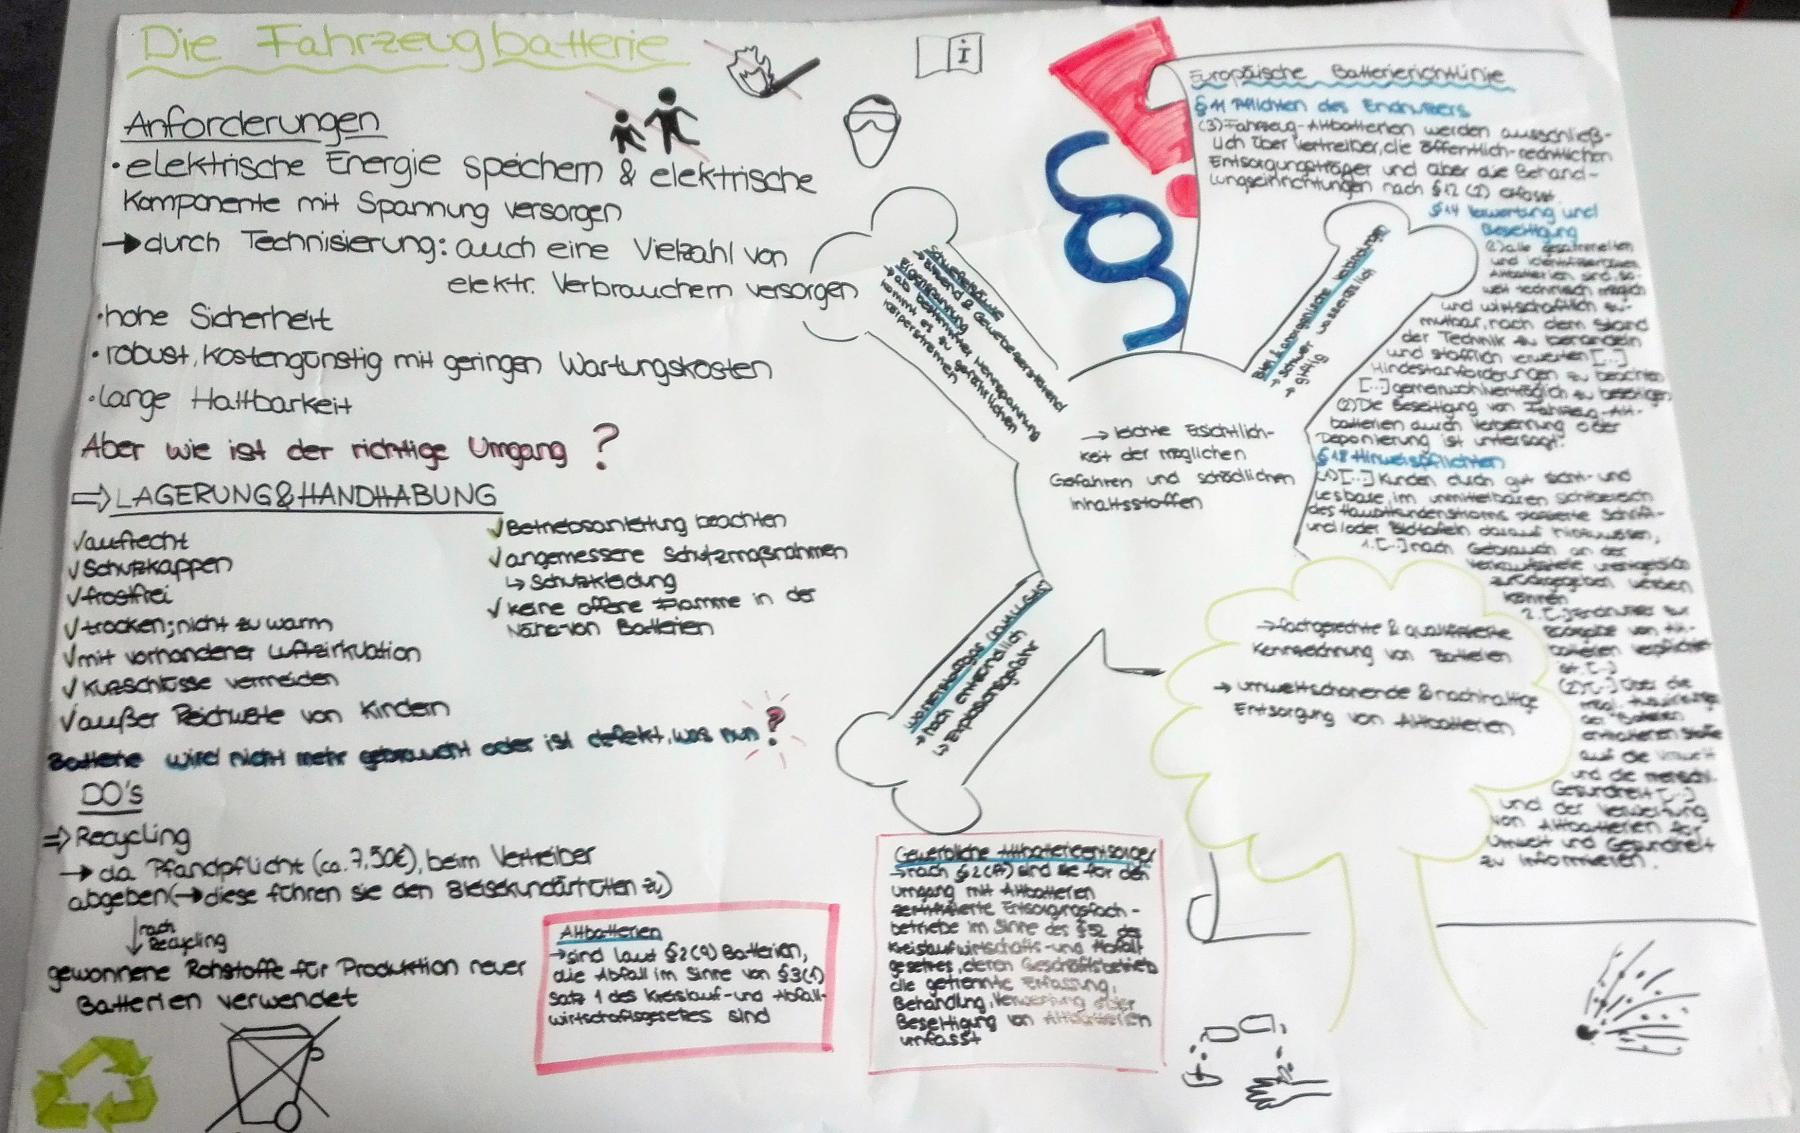 Die Fahrzeugbatterie
Anforderungen
• elektrische Energie speichern & elektrische
Komponente mit Spannung versorgen
→ durch Technisierung: auch eine Vielzahl von
elektr. Verbrauchern versorgen
• hohe Sicherheit
• robust, kostengünstig mit geringen Wartungskosten
• lange Haltbarkeit
Aber wie ist der richtige Umgang ?
⇒ LAGERUNG & HANDHABUNG
√ aufrecht
√ Schutzkappen
√ frostfrei
√ trocken; nicht zu warm
√ mit vorhandener Luftzirkulation
√ Kurzschlüsse vermeiden
√ außer Reichweite von Kindern
√ Betriebsanleitung beachten
√ angemessene Schutzmaßnahmen
↳ Schutzkleidung
√ keine offene Flamme in der
Nähe von Batterien
Batterie wird nicht mehr gebraucht oder ist defekt, was nun ?
DO's
⇒ Recycling
→ da Pfandpflicht (ca. 7,50€), beim Vertreiber
abgeben (→ diese führen sie den Bleisekundärhütten zu)
↓ nach
Recycling
gewonnene Rohstoffe für Produktion neuer
Batterien verwendet
Altbatterien
→ sind laut § 2 (9) Batterien,
die Abfall im Sinne von § 3 (1)
Satz 1 des Kreislauf- und Abfall-
wirtschaftsgesetzes sind
i
Schwefelsäure
→ ätzend & Gewebezerstörend
Eigenspannung
→ ab bestimmter Nennspannung
kommt es zu gefährlichen
Körperströmen
Blei & anorganische Verbindungen
→ schwer wasserlöslich
→ giftig
→ leichte Ersichtlich-
keit der möglichen
Gefahren und schädlichen
Inhaltsstoffen
Wasserstoffgas
→ hoch entzündlich
↳ Explosionsgefahr
Gewerbliche Altbatterieentsorger
→ nach § 2 sind sie für den
Umgang mit Altbatterien
zertifizierte Entsorgungsfach-
betriebe im Sinne des § 52 des
Kreislaufwirtschafts- und Abfall
gesetzes, deren Geschäftsbetrieb
die getrennte Erfassung,
Behandlung, Verwertung oder
Beseitigung von Altbatterien
umfasst
§
Europäische Batterierichtlinie
§ 11 Pflichten des Endnutzers
(3) Fahrzeug-Altbatterien werden ausschließ-
lich über Vertreiber, die öffentlich-rechtlichen
Entsorgungsträger und über die Behand-
lungseinrichtungen nach § 12 (2) erfasst.
§ 14 Verwertung und
Beseitigung
alle gesammelten
und identifizierbaren
Altbatterien sind, so-
weit technisch möglich
und wirtschaftlich zu-
mutbar, nach dem Stand
der Technik zu behandeln
und stofflich verwerten [...]
Mindestanforderungen zu beachten
[...] gemeinwohlverträglich zu beseitigen
(2) Die Beseitigung von Fahrzeug-Alt-
batterien durch Verbrennung oder
Deponierung ist untersagt.
§ 18 Hinweispflichten
(1) [...] Kunden durch gut sicht- und
lesbare, im unmittelbaren Sichtbereich
des Hauptkundenstroms platzierte Schrift-
und/oder Bildtafeln darauf hinzuweisen,
1. [...] nach Gebrauch an der
Verkaufsstelle unentgeltlich
zurückgegeben werden
können
2. [...] Endnutzer zur
Rückgabe von Alt-
batterien verpflichtet
ist [...]
(2) [...] über die
mögl. Auswirkungen
der Batterien
enthaltenen Stoffe
auf die Umwelt
und die menschl.
Gesundheit [...]
und der Verwertung
von Altbatterien für
Umwelt und Gesundheit
zu informieren.
→ fachgerechte & qualifizierte
Kennzeichnung von Batterien
→ umweltschonende & nachhaltige
Entsorgung von Altbatterien